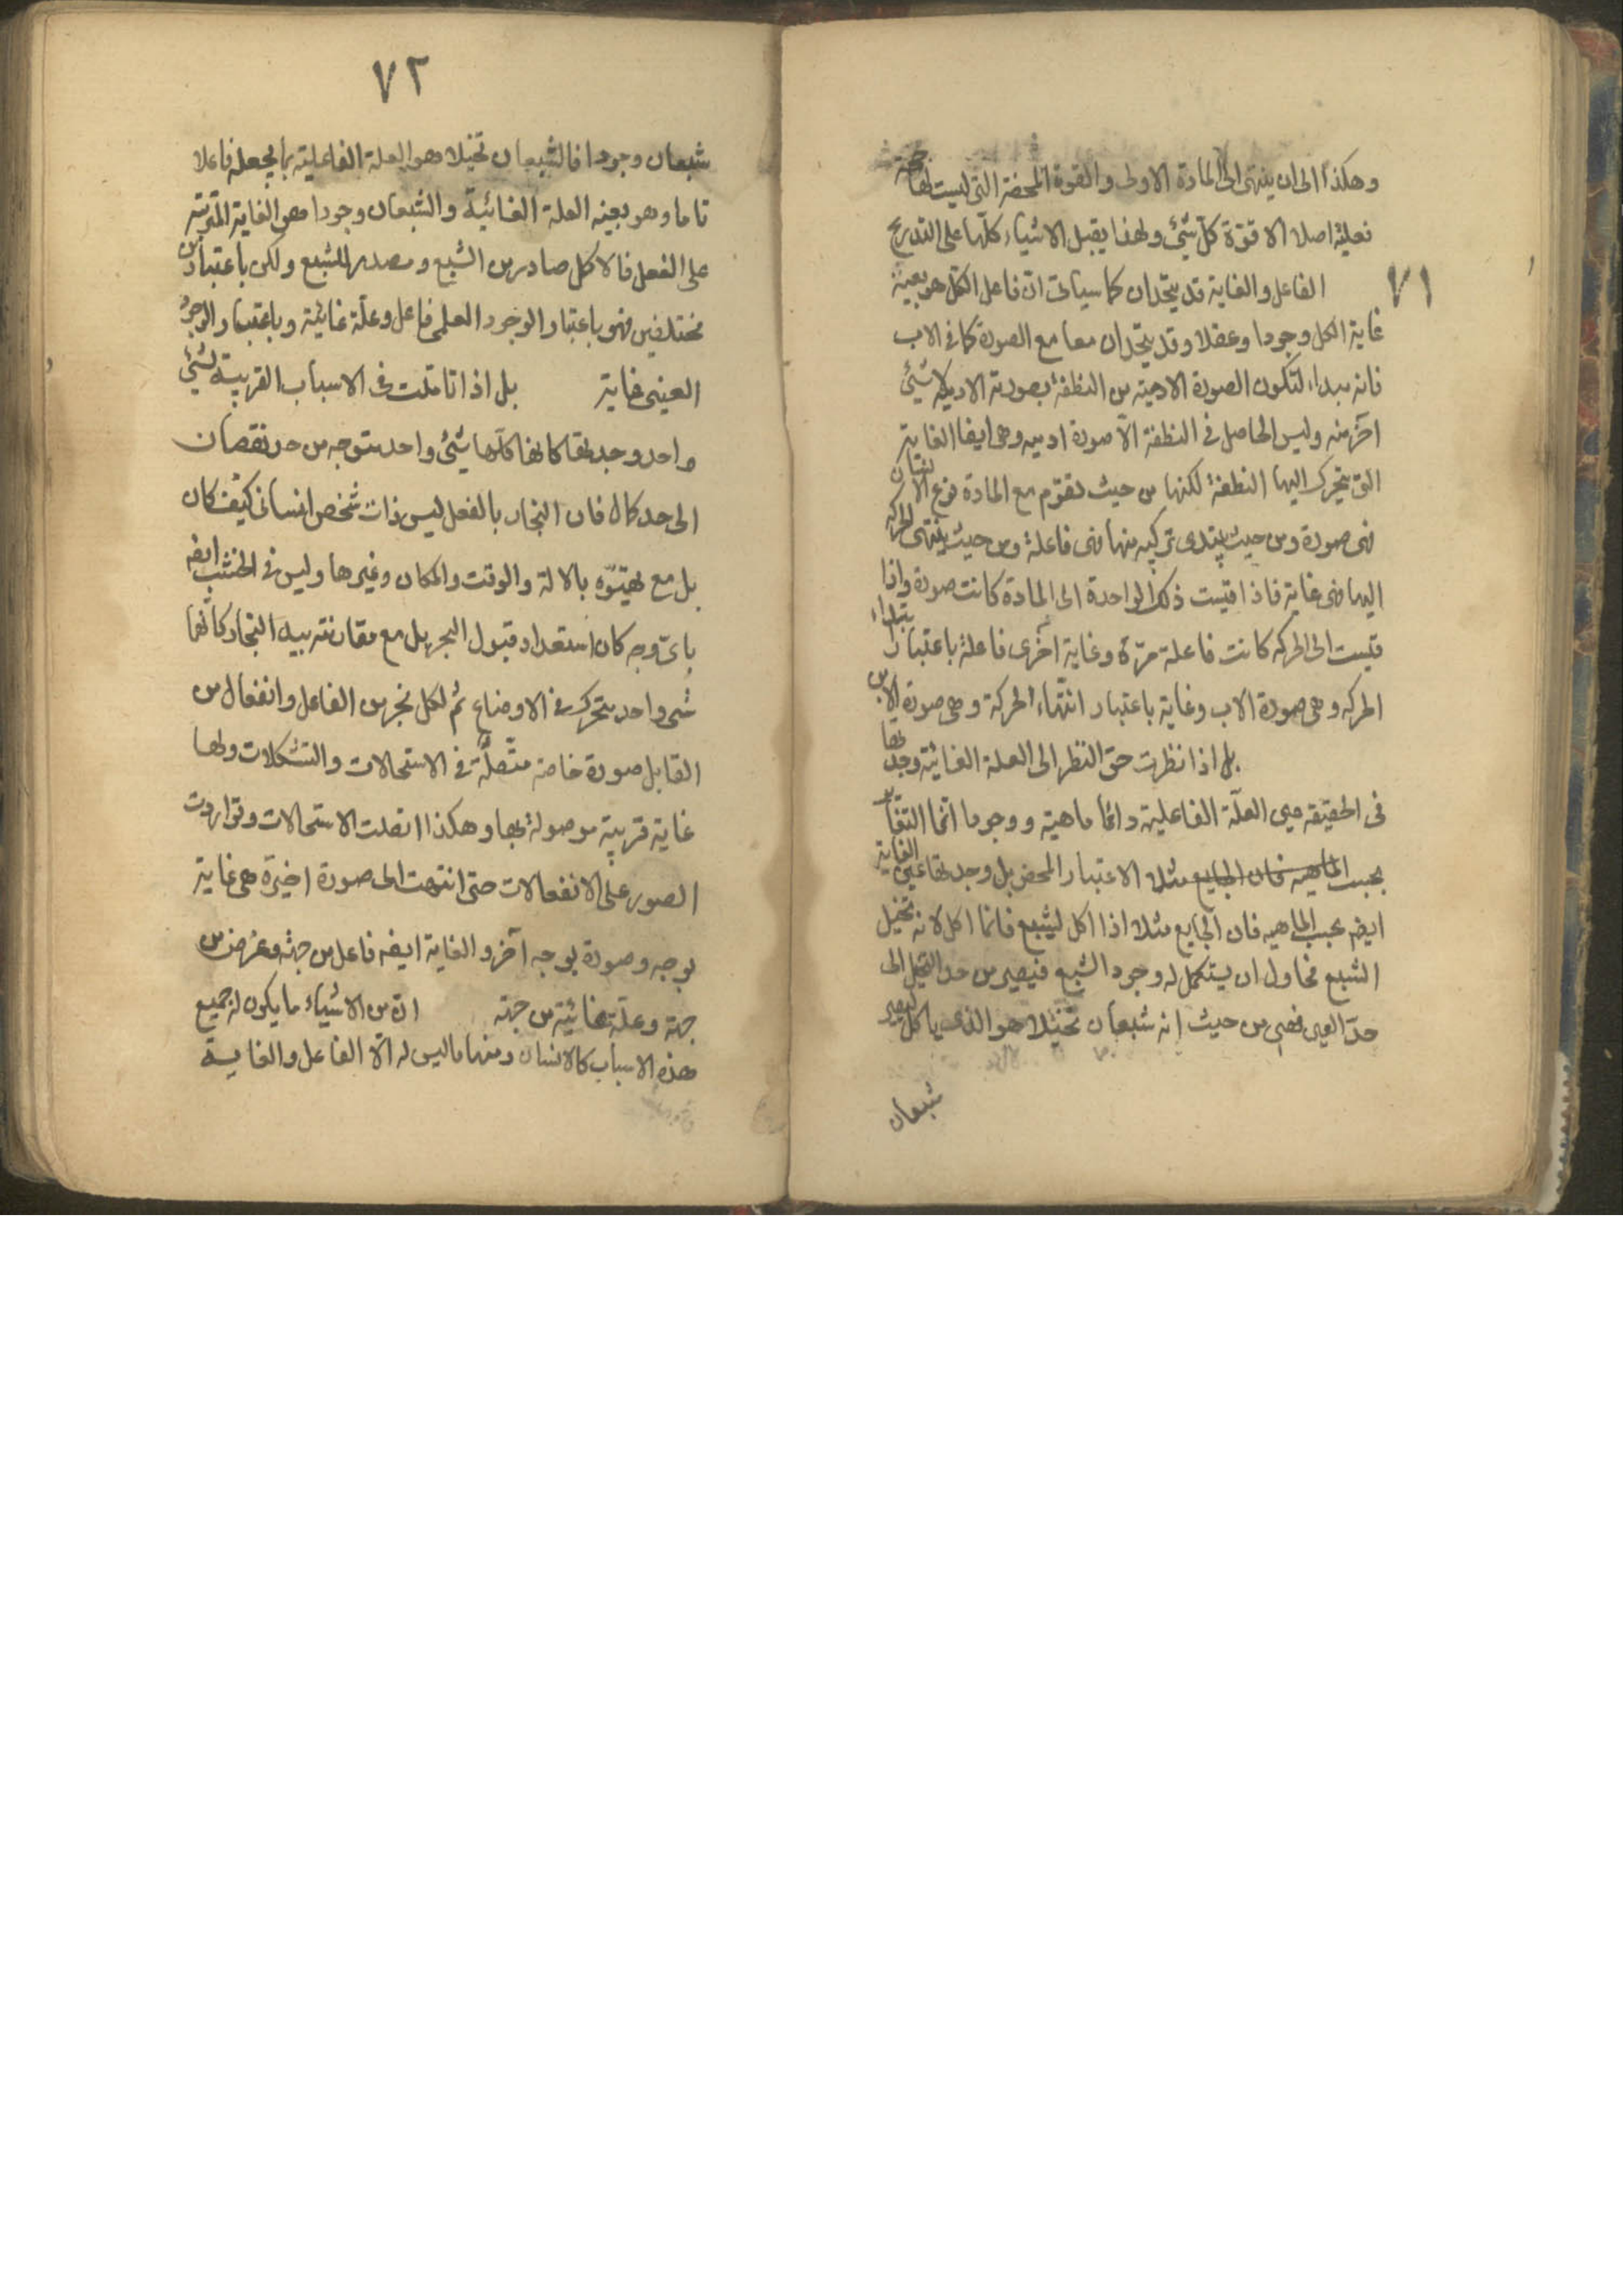 وهكذا الى ان ينتهى الى المادة الاولى والقوة المحضة التى ليست لها جهة
فعلية اصلا الا قوّة كل شئ ولهذا يقبل الاشياء كلّها على التدريج
٧١
الفاعل والغاية قد يتحدان كما سياتى انّ فاعل الكل هو بعينه
غاية الكل وجودا وعقلا وقد يتحدان معا مع الصورة كما فى الاب
فانه مبداء لتكون الصورة الادمية من النطفة بصورته الادمية لا شئ
آخر منه وليس الحاصل فى النطفة الاّ صورة ادميه وهى ايضا الغاية
التى يتحرك اليها النطفة لكنها من حيث تقوّم مع المادة نوع الانسان
فهى صورة ومن حيث يبتدى تركيبه منها فهى فاعلة ومن حيث ينتهى الحركة
اليها فهى غاية فاذا قيست ذلك الواحدة الى المادة كانت صورة واذا
قيست الى الحركه كانت فاعلة مرّة وغاية اخرى فاعلة باعتبار ابتداء
الحركه وهى صورة الاب وغاية باعتبار انتهاء الحركة وهى صورة الابن
بل اذا نظرت حق النظر الى العلة الغائية وجدتها
فى الحقيقه هى العلّة الفاعليه دائما ماهية ووجودا انما التغاير
بحسب الماهيه فان الجايع مثلا الاعتبار المحض بل وجدتها عين الغاية
ايضا بحسب الماهيه فان الجايع مثلا اذا اكل ليشبع فانما اكل لانه تخيل
الشبع فحاول ان يستكمل له وجود الشبع فيصير من حد التخيل الى
حدّ العين فهى من حيث انه شبعان تخيّلا هو الذى ياكل ليصير
شبعان
٧٢
شبعان وجودا فالشبعان تخيلا هو العلة الفاعلية بما يجعله فاعلا
تاما وهو بعينه العلة الغائية والشبعان وجودا هو الغاية المترتبة
على الفعل فالاكل صادر من الشبع ومصدر للشبع ولكن باعتبارين
مختلفين فهو باعتبار الوجود العلمى فاعل وعلّة غائية وباعتبار الوجود
العينى غاية بل اذا تاملت فى الاسباب القريبة لشئ
واحد وجدتها كانها كلّها شئ واحد متوجه من حد نقصان
الى حد كمال فان النجار بالفعل ليس ذات شخص انسانى كيف كان
بل مع تهيّؤه بالالة والوقت والمكان وغيرها وليس فى الخشب ايضا
باىّ وجه كان استعداد قبول النجر بل مع مقارنته بيد النجار كانهما
شى واحد يتحرك فى الاوضاع ثم لكل نجر من الفاعل وانفعال من
القابل صورة خاصة متصلة فى الاستحالات والتشكلات ولها
غاية قريبة موصولة بها وهكذا اتصلت الاستحالات وتواردت
الصور على الانفعالات حتى انتهت الى صورة اخيرة هى غاية
بوجه وصورة بوجه آخر والغاية ايضا فاعل من جهة وغرض من
جهة وعلّة غائية من جهة انّ من الاشياء ما يكون له جميع
هذه الاسباب كالانسان ومنها ما ليس له الّا الفاعل والغاية